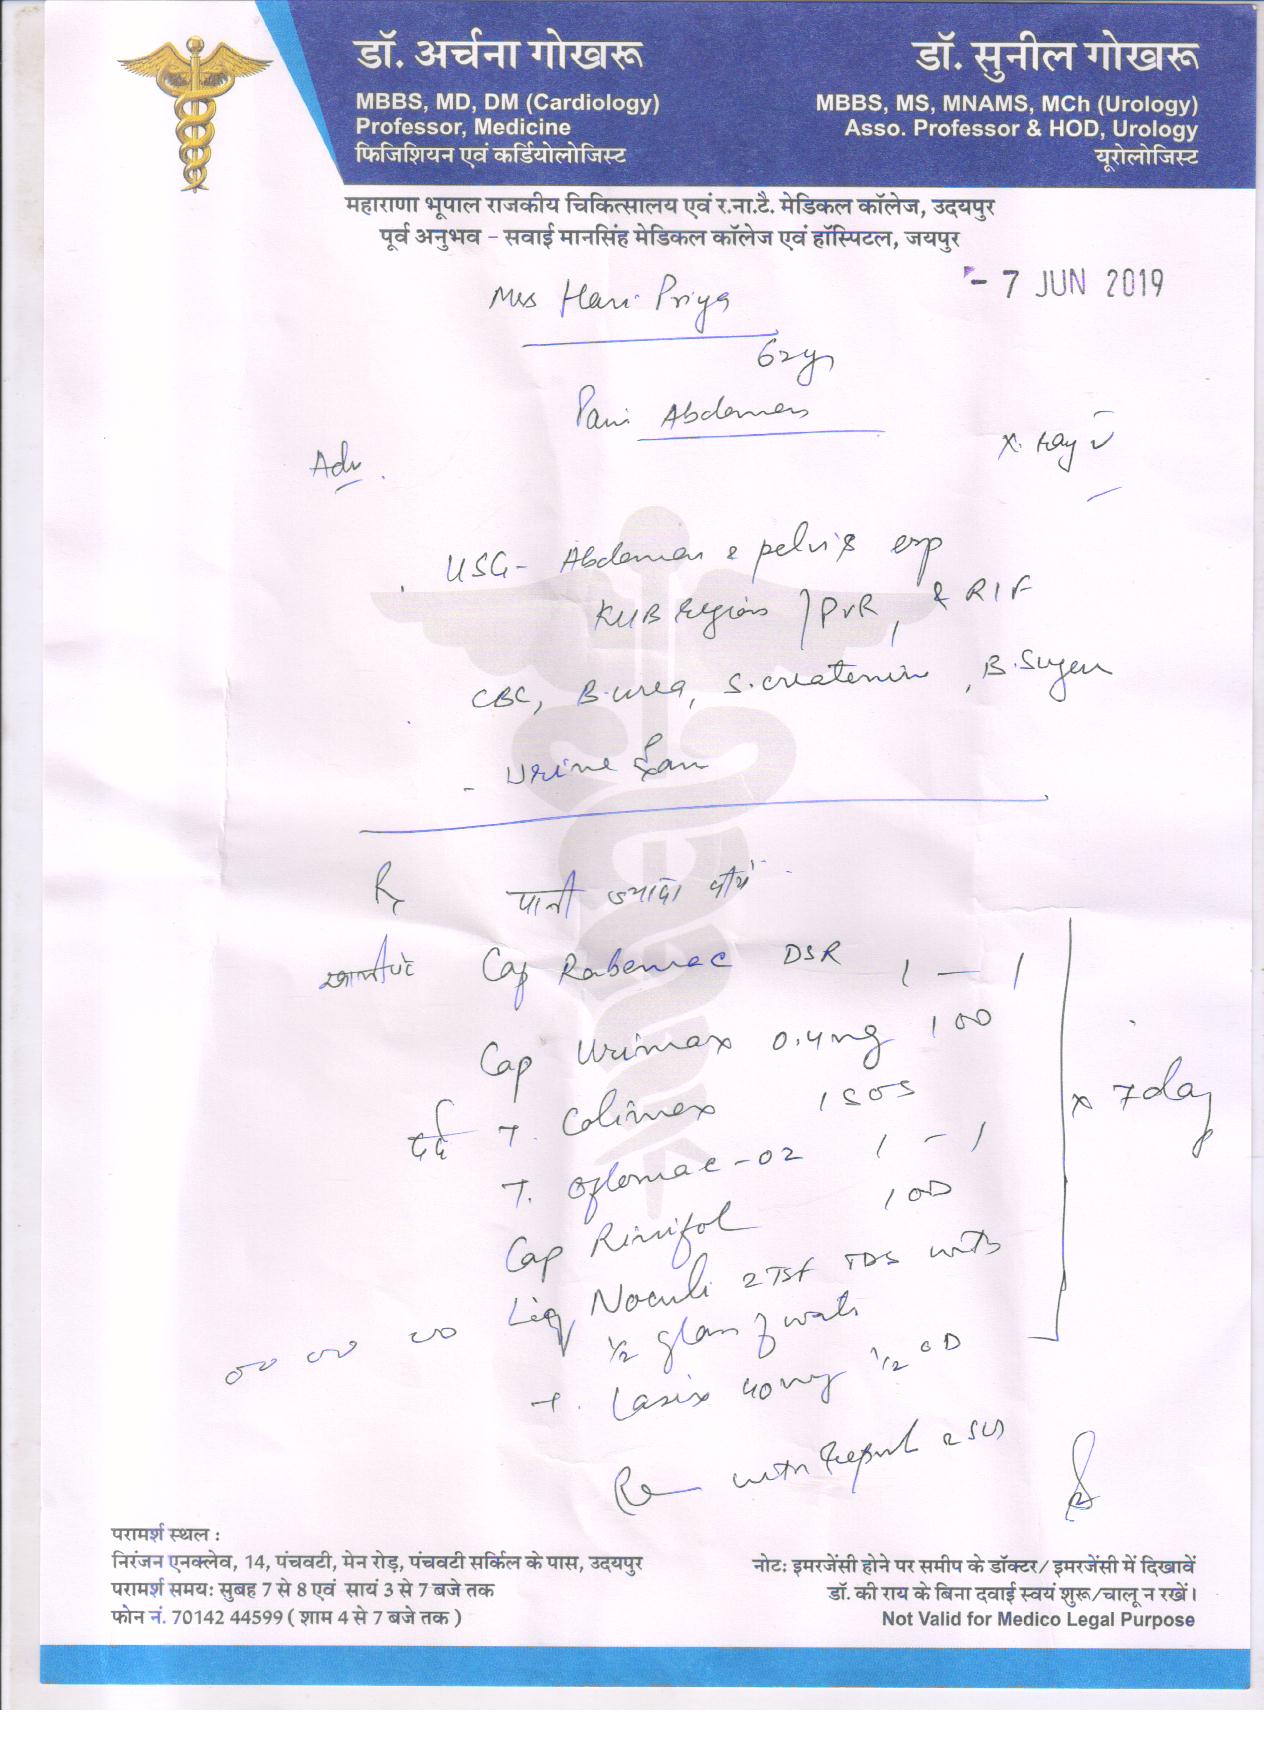 डॉ. अर्चना गोखरू
MBBS, MD, DM (Cardiology)
Professor, Medicine
फिजिशियन एवं कर्डियोलोजिस्ट
डॉ. सुनील गोखरू
MBBS, MS, MNAMS, MCh (Urology)
Asso. Professor & HOD, Urology
यूरोलोजिस्ट
महाराणा भूपाल राजकीय चिकित्सालय एवं र.ना.टै. मेडिकल कॉलेज, उदयपुर
पूर्व अनुभव - सवाई मानसिंह मेडिकल कॉलेज एवं हॉस्पिटल, जयपुर
- 7 JUN 2019
Mrs Hari Priya
62yr
Pain Abdomen
Adv.
X. Ray
USG- Abdomen & pelvis esp
KUB region / PVR, & RIF
CBC, B. urea, S. createnin, B. Suger
- Urine Exam
Rx पानी ज्यादा पीये
खालीपेट Cap Rabemac DSR 1 — 1
Cap Urimax 0.4mg 1 OD
दर्द T. Colimex 1 SOS
T. Oflomac-OZ 1 - 1
Cap Rinifol 1 OD
x 7 day
Liq Noculi 2 TSF TDS with
1/2 glass of water
T. Lasix 40mg 1/2 OD
Re with Report & SOS
परामर्श स्थल :
निरंजन एनक्लेव, 14, पंचवटी, मेन रोड़, पंचवटी सर्किल के पास, उदयपुर
परामर्श समय: सुबह 7 से 8 एवं सायं 3 से 7 बजे तक
फोन नं. 70142 44599 ( शाम 4 से 7 बजे तक )
नोट: इमरजेंसी होने पर समीप के डॉक्टर/ इमरजेंसी में दिखावें
डॉ. की राय के बिना दवाई स्वयं शुरू/चालू न रखें।
Not Valid for Medico Legal Purpose